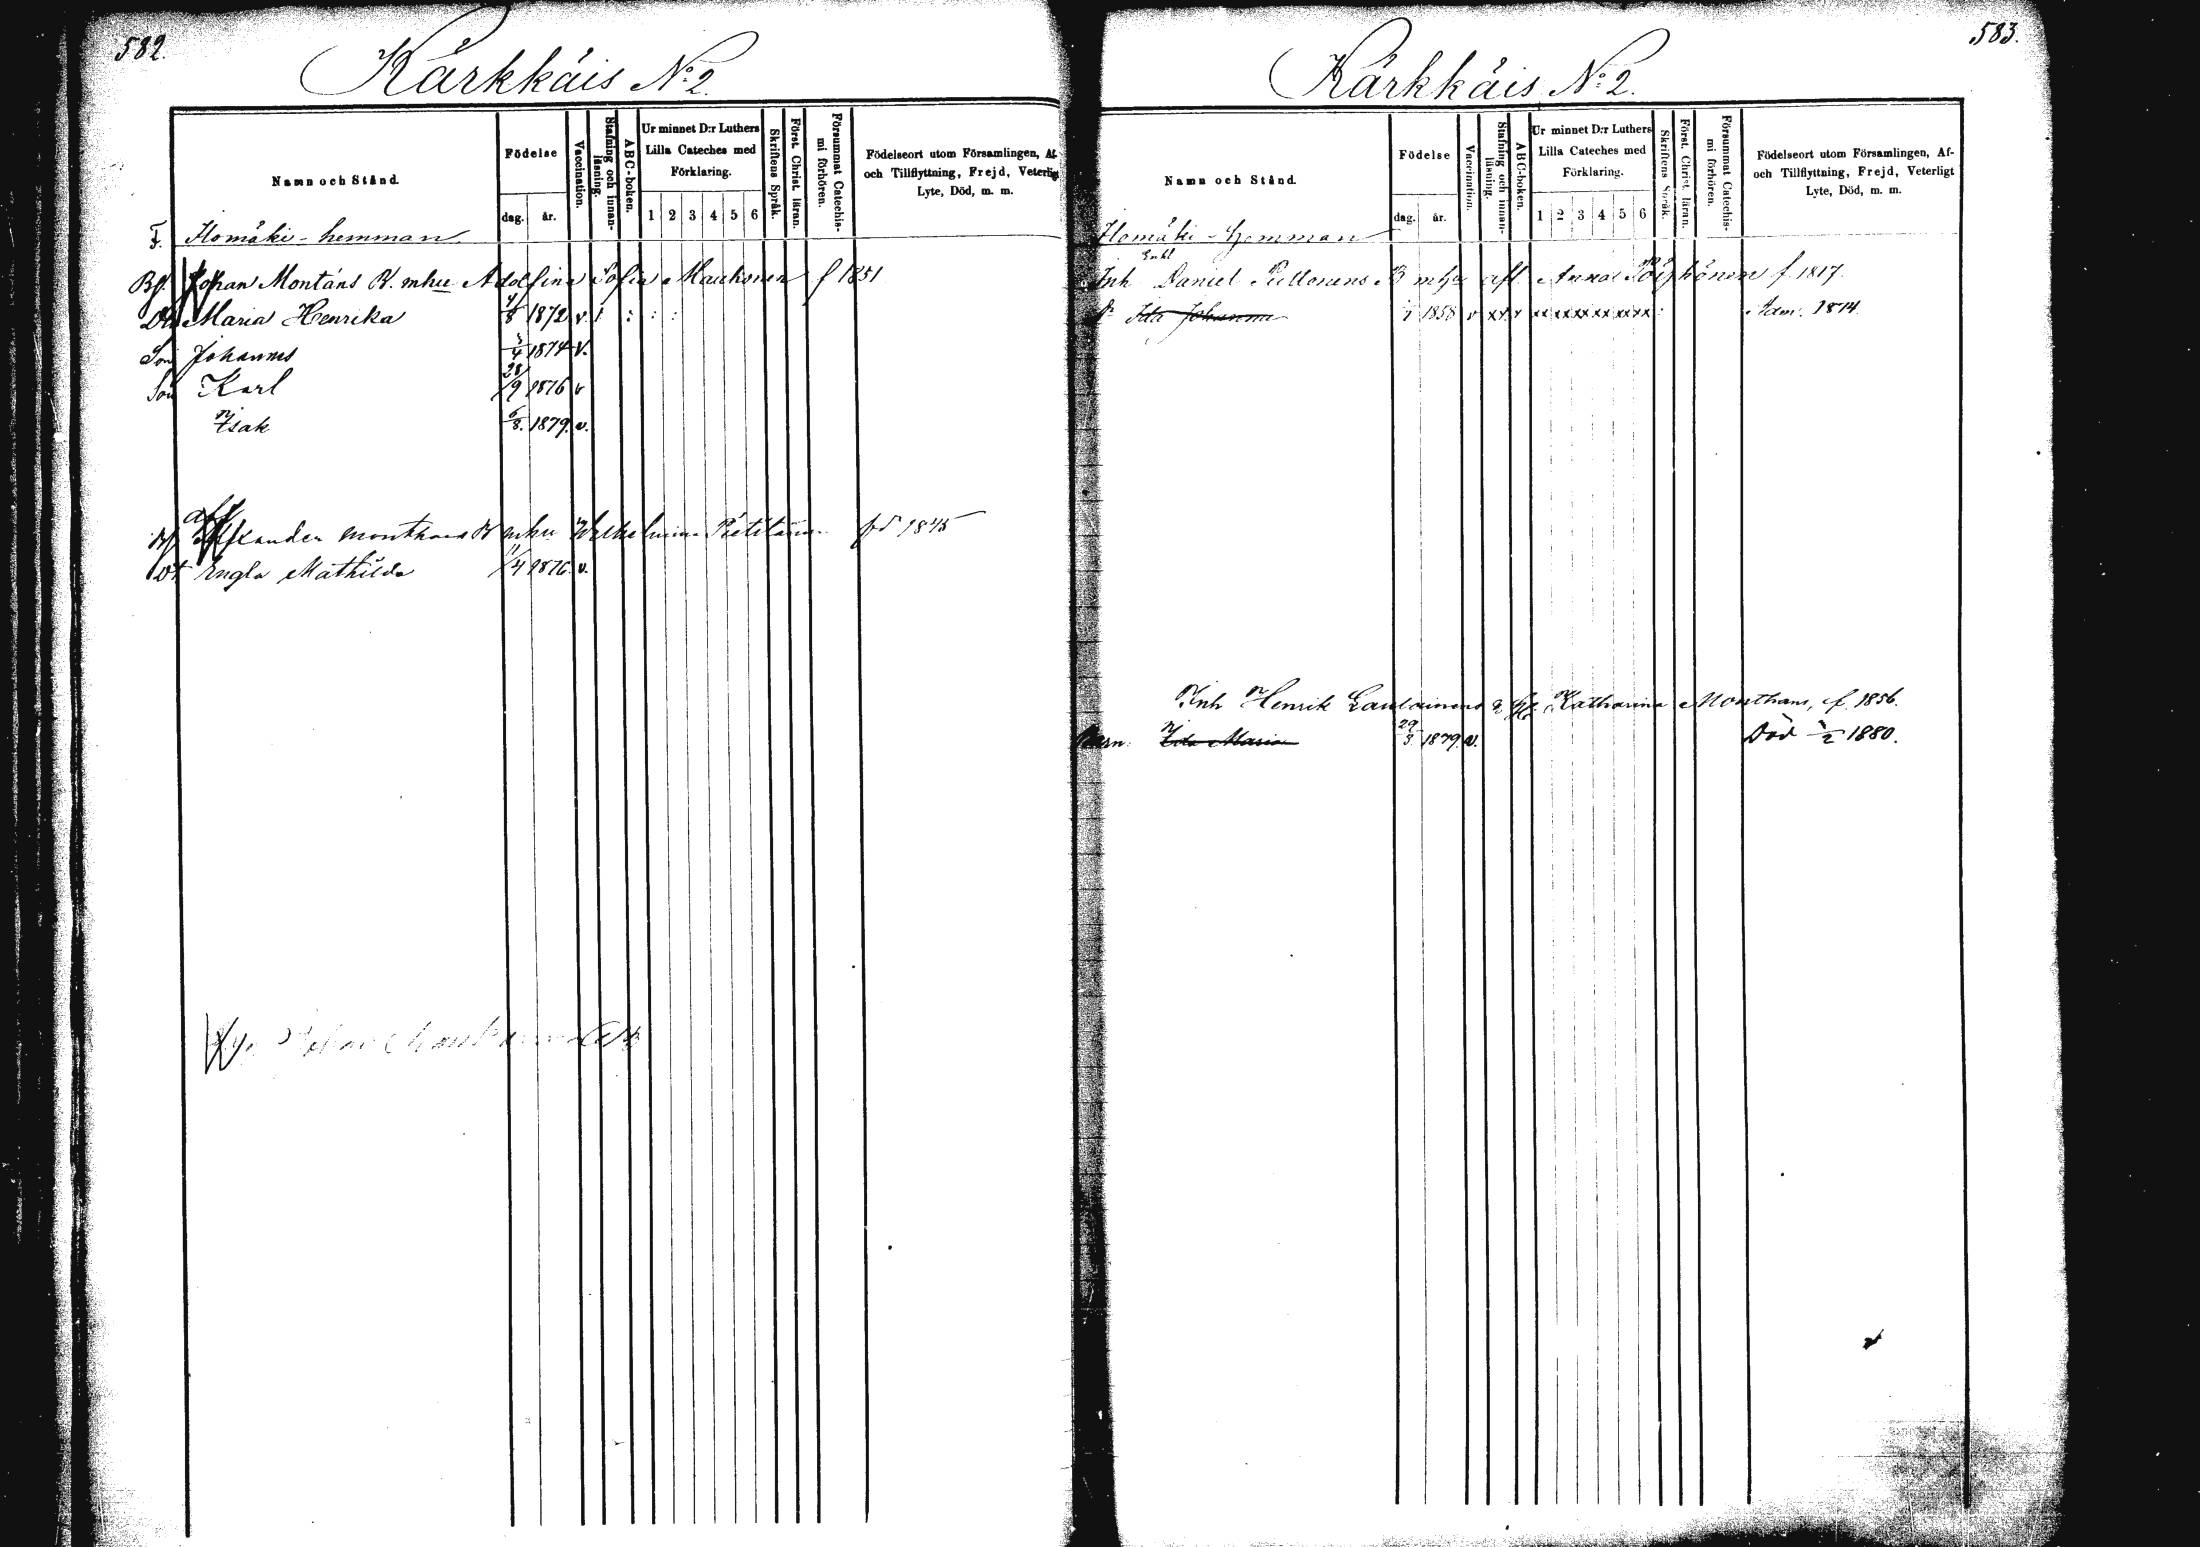 582.
Kärkkäis No 2.
Namn och Stånd.
Födelse
dag. år.
Vaccination.
Stafning och innanläsning.
ABC-boken.
Ur minnet D:r Luthers
Lilla Cateches med
Förklaring.
1 2 3 4 5 6
Skriftens Språk.
Först. Christ. läran.
Försummat Catechismi förhören.
Födelseort utom Församlingen, Af-
och Tillflyttning, Frejd, Veterligt
Lyte, Död, m. m.
Ilomäki - hemman.
Johan Montáns B. mhu Adolfina Sofia Maukonen f 1851
Maria Henrika 1872 v.
Son Johannes 1874 v.
Son Karl 28/9 1876 v
Isak 6/8. 1879. v.
Alexander monthans mhu Wilhelmina fd 1845
Dt Engla Mathilda 11/4 1876. v.
583.
Kärkkäis No 2.
Namn och Stånd.
Födelse
dag. år.
Vaccination.
Stafning och innanläsning.
ABC-boken.
Ur minnet D:r Luthers
Lilla Cateches med
Förklaring.
1 2 3 4 5 6
Skriftens Språk.
Först. Christ. läran.
Försummat Catechismi förhören.
Födelseort utom Församlingen, Af-
och Tillflyttning, Frejd, Veterligt
Lyte, Död, m. m.
Ilomäki - hemman
Enkl
Inh Daniel mhu afl. Anna f. 1817.
Ida Johanna 1858 v Adm. 1874.
Inh Henrik Katharina Monthans, f. 1856.
Barn: Ida Maria 29/3 1879. v. Död 1880.